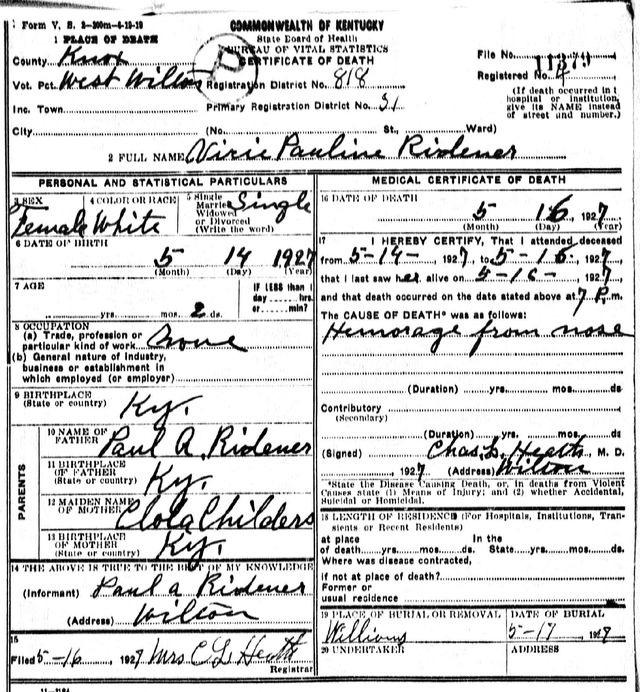 Form V. S. 2-300m-6-19-19
COMMONWEALTH OF KENTUCKY
State Board of Health
BUREAU OF VITAL STATISTICS
CERTIFICATE OF DEATH
1 PLACE OF DEATH
County Knox
Vot. Pct. West Wilton
Inc. Town
City
Registration District No. 818
Primary Registration District No. 31
(No. St., Ward)
File No. 11379
Registered No. 4
(If death occurred in
hospital or institution,
give its NAME instead
of street and number.)
2 FULL NAME Virie Pauline Ridener
PERSONAL AND STATISTICAL PARTICULARS
3 SEX Female
4 COLOR OR RACE White
5 Single Married Widowed or Divorced (Write the word) Single
6 DATE OF BIRTH
5 14 1927
(Month) (Day) (Year)
7 AGE
yrs. mos. 2 ds.
IF LESS than 1
day hrs.
or min?
8 OCCUPATION
(a) Trade, profession or
particular kind of work None
(b) General nature of industry,
business or establishment in
which employed (or employer)
9 BIRTHPLACE
(State or country) Ky.
PARENTS
10 NAME OF
FATHER Paul A. Ridener
11 BIRTHPLACE
OF FATHER
(State or country) Ky.
12 MAIDEN NAME
OF MOTHER Clola Childers
13 BIRTHPLACE
OF MOTHER
(State or country) Ky.
14 THE ABOVE IS TRUE TO THE BEST OF MY KNOWLEDGE
(Informant) Paul A Ridener
(Address) Wilton
15
Filed 5-16, 1927 Mrs C. L. Heath
Registrar
MEDICAL CERTIFICATE OF DEATH
16 DATE OF DEATH
5 16, 1927
(Month) (Day) (Year)
17 I HEREBY CERTIFY, That I attended deceased
from 5-14-, 1927, to 5-16, 1927
that I last saw her alive on 5-16-, 1927
and that death occurred on the date stated above at 7 P. m.
The CAUSE OF DEATH* was as follows:
Hemorage from nose
(Duration) yrs. mos. ds.
Contributory
(Secondary)
(Duration) yrs. mos. ds.
(Signed) Chas. L. Heath, M. D.
, 1927 (Address) Wilton
*State the Disease Causing Death, or, in deaths from Violent
Causes state (1) Means of Injury; and (2) whether Accidental,
Suicidal or Homicidal.
18 LENGTH OF RESIDENCE (For Hospitals, Institutions, Tran-
sients or Recent Residents)
at place In the
of death yrs. mos. ds. State yrs. mos. ds.
Where was disease contracted,
if not at place of death?
Former or
usual residence
19 PLACE OF BURIAL OR REMOVAL
DATE OF BURIAL
5-17, 1927
20 UNDERTAKER
ADDRESS